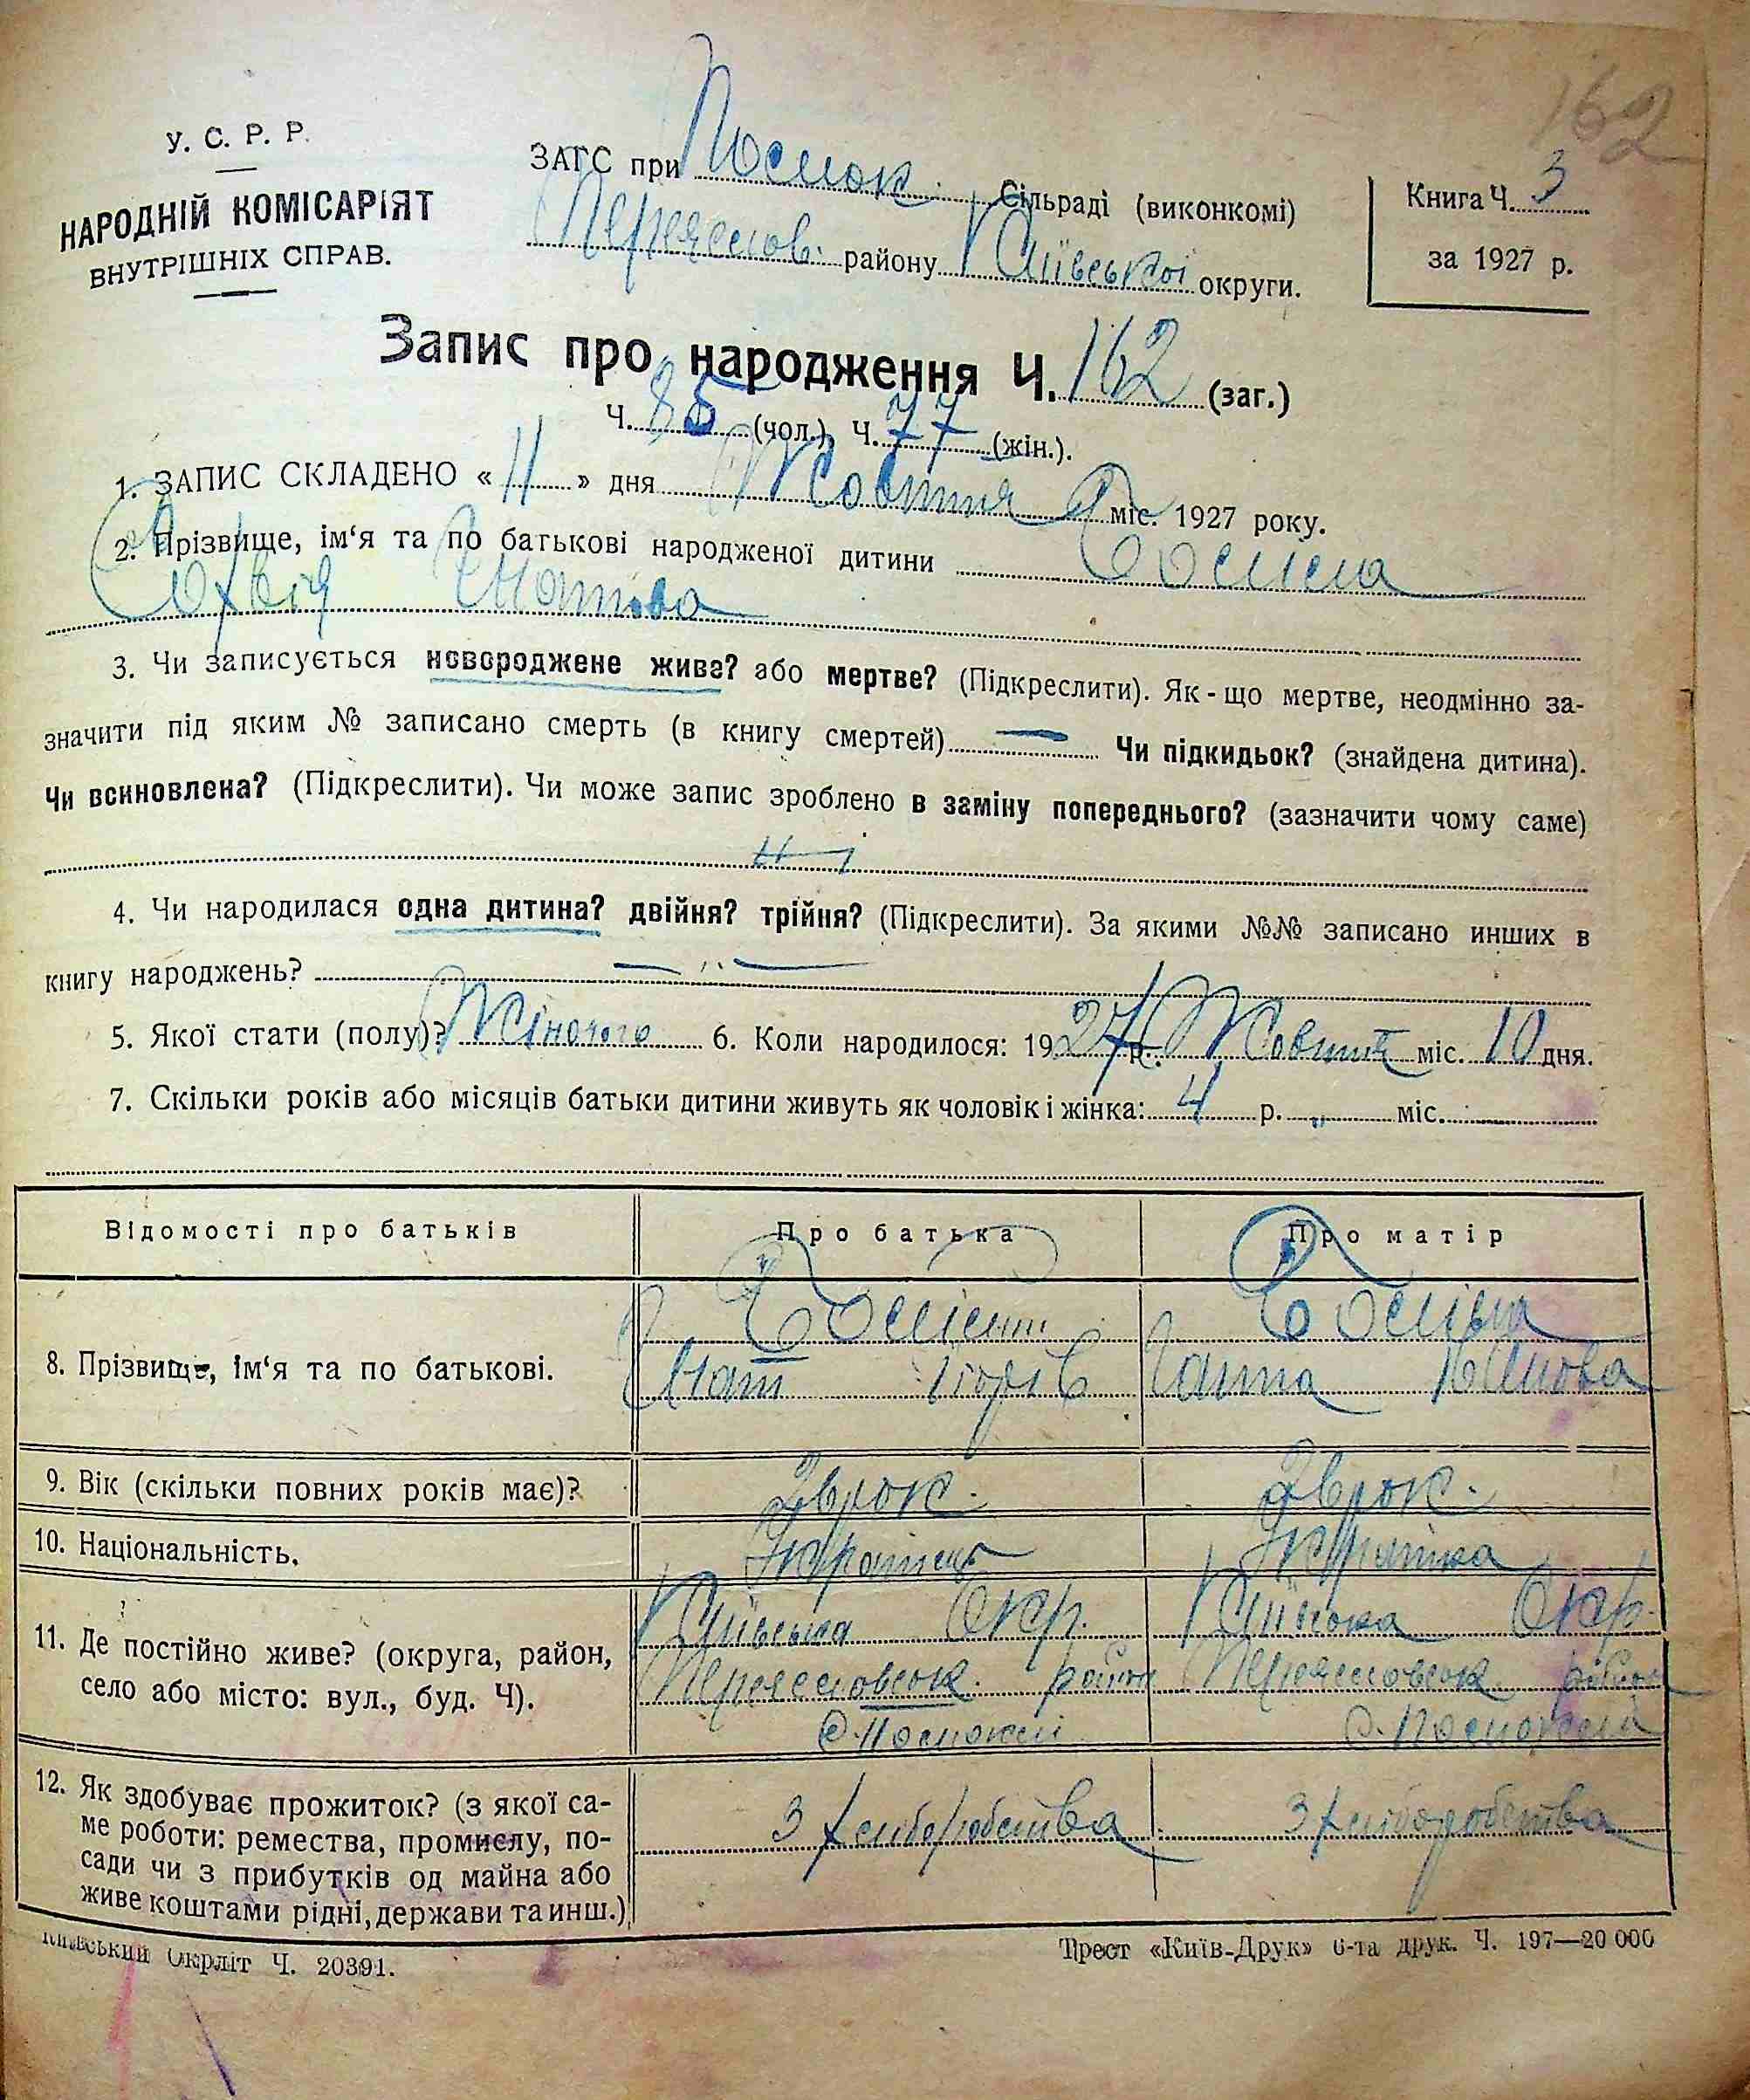 162
У. С. Р. Р.
НАРОДНІЙ КОМІСАРІЯТ
ВНУТРІШНІХ СПРАВ.
ЗАГС при Посток. Сільраді (виконкомі)
Переяслов. району Київської округи.
Книга Ч. 3
за 1927 р.
Запис про народження Ч. 162 (заг.)
Ч. 85 (чол.), Ч. 77 (жін.).
1. ЗАПИС СКЛАДЕНО « 11 » дня Жовтня міс. 1927 року.
2. Прізвище, ім‘я та по батькові народженої дитини
Софія Гнатова
3. Чи записується новороджене живе? або мертве? (Підкреслити). Як-що мертве, неодмінно за-
значити під яким № записано смерть (в книгу смертей) — Чи підкидьок? (знайдена дитина).
Чи всиновлена? (Підкреслити). Чи може запис зроблено в заміну попереднього? (зазначити чому саме)
4. Чи народилася одна дитина? двійня? трійня? (Підкреслити). За якими №№ записано инших в
книгу народжень? — „ —
5. Якої стати (полу)? Жіночого 6. Коли народилося: 1927 р. Жовтня міс. 10 дня.
7. Скільки років або місяців батьки дитини живуть як чоловік і жінка: 4 р. „ міс.
Відомості про батьків Про батька Про матір
8. Прізвище, ім‘я та по батькові.
Гнат Ганна
9. Вік (скільки повних років має)? рок. рок.
10. Національність. Українець Українка
11. Де постійно живе? (округа, район,
село або місто: вул., буд. Ч).
Київська Окр. Київська Окр.
Переясловськ. район Переясловськ. район
12. Як здобуває прожиток? (з якої са-
ме роботи: ремества, промислу, по-
сади чи з прибутків од майна або
живе коштами рідні, держави та инш.)
З хліборобства З хліборобства
Київський Окрліт Ч. 20391.
Трест «Київ-Друк» 6-та друк. Ч. 197—20 000